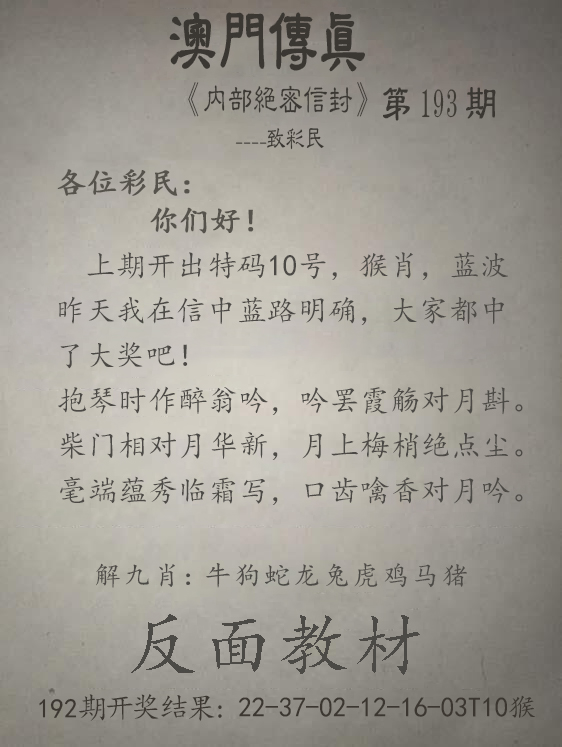 澳門傳眞
《内部絕密信封》第193期
----致彩民
各位彩民：
你们好！
上期开出特码10号，猴肖，蓝波
昨天我在信中蓝路明确，大家都中
了大奖吧！
抱琴时作醉翁吟，吟罢霞觞对月斟。
柴门相对月华新，月上梅梢绝点尘。
毫端蕴秀临霜写，口齿噙香对月吟。
解九肖：牛狗蛇龙兔虎鸡马猪
反面教材
192期开奖结果：22-37-02-12-16-03T10猴